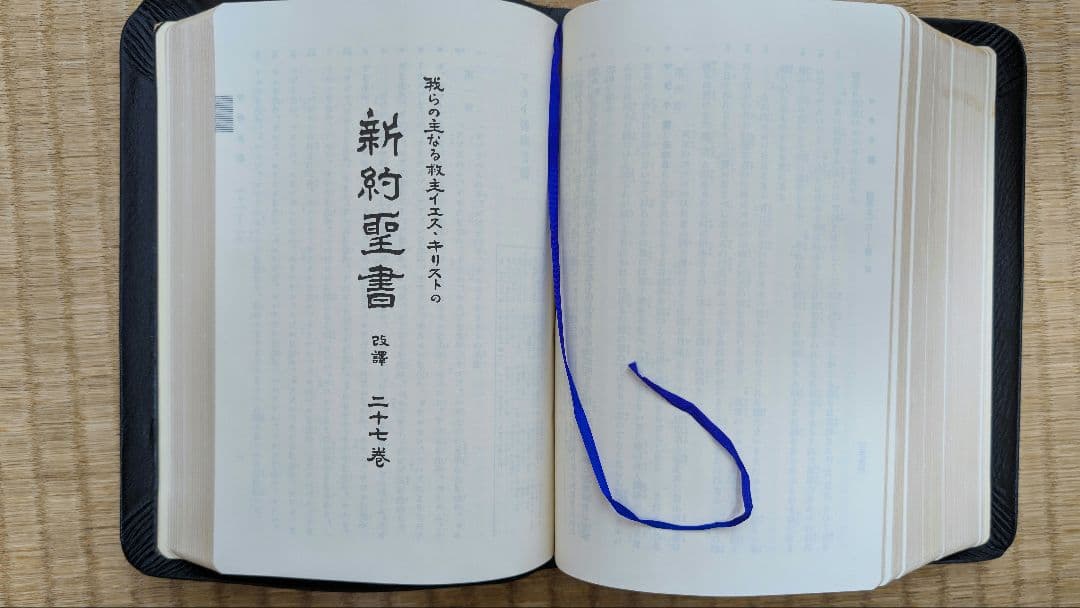 我らの主なる救主イエス・キリストの
新約聖書 改譯 二十七巻